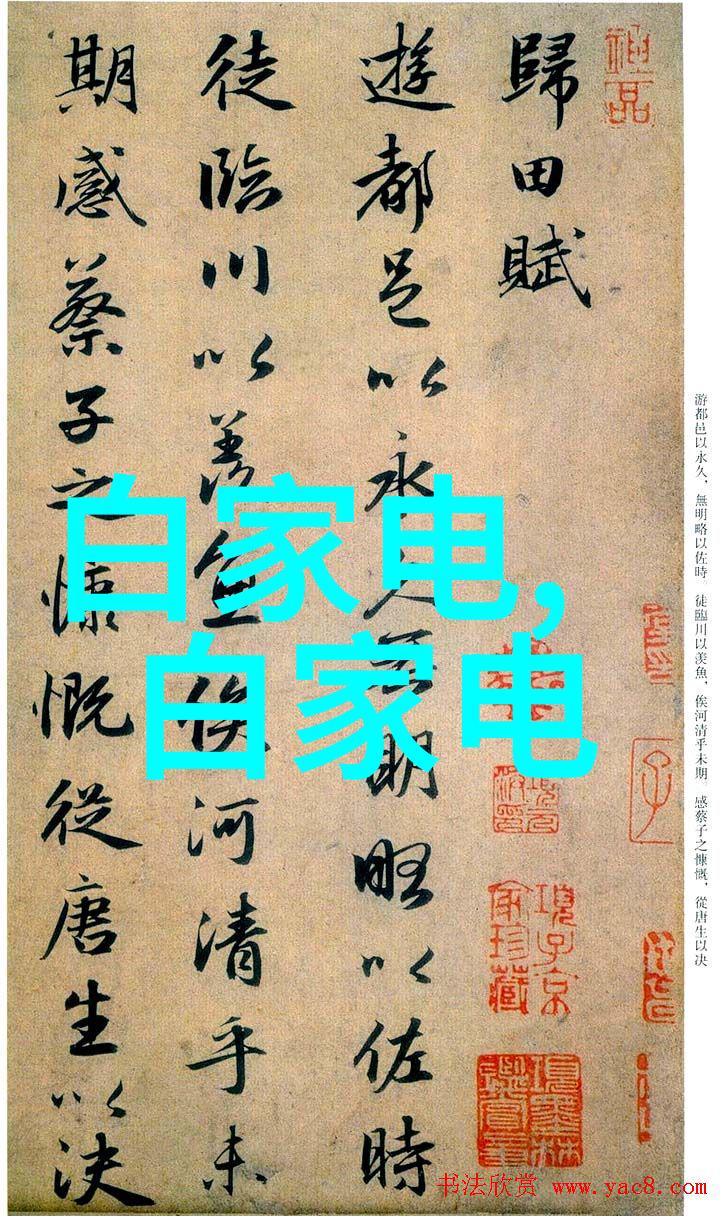 神品
歸田賦
遊都邑以永久無明略以佐時
徒臨川以羨魚俟河清乎未
期感蔡子之慷慨從唐生以決
白家电,
白家电
项子京
家珍藏
游都邑以永久，無明略以佐時。徒臨川以羨魚，俟河清乎未期。感蔡子之慷慨，從唐生以决
书法欣赏 www.yac8.com